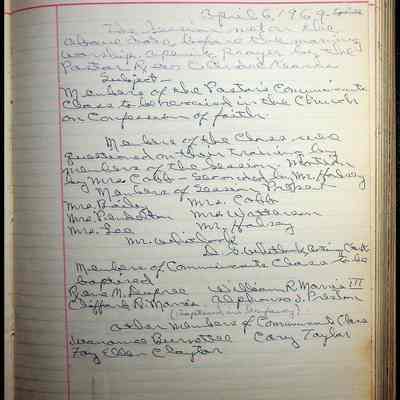 April 6, 1969
The Session met on the
above date, before the morning
worship, opened prayer by the
Pastor Rev.
Subject -
Members of the Pastor's Communicants
Class to be received in the Church
on Confession of faith.
Members of the Class were
questioned on their training by
members of the Session. Motion
by Mrs. Cobb - Seconded by Mr. Halsey
Members of Session Present
Mrs. Bailey Mrs. Cobb
Mrs. Pemberton Mrs. Watterson
Mrs. Lee Mr. Halsey
Mr. Whitlock
Members of Communicants Class to be
baptized
William R. Morris III
Clifford R. Morris Alphonso J. Preston
(Baptized in Infancy)
other members of Communicants Class
Cary Taylor
Fay Ellen Clayton